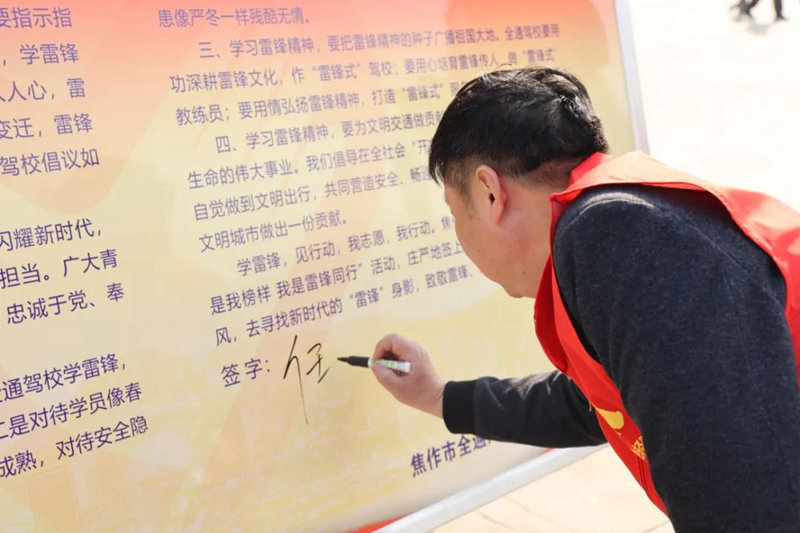 要指示指
，学雷锋
人人心，雷
变迁，雷锋
驾校倡议如
闪耀新时代，
担当。广大青
忠诚于党、奉
通驾校学雷锋，
二是对待学员像春
成熟，对待安全隐
患像严冬一样残酷无情。
三、学习雷锋精神，要把雷锋精神的种子广播祖国大地。全通驾校要用
功深耕雷锋文化，作“雷锋式”驾校；要用心培育雷锋传人，做“雷锋式”
教练员；要用情弘扬雷锋精神，打造“雷锋式”
四、学习雷锋精神，要为文明交通做贡献
生命的伟大事业。我们倡导在全社会“开
自觉做到文明出行，共同营造安全、畅
文明城市做出一份贡献。
学雷锋，见行动，我志愿，我行动。焦
是我榜样 我是雷锋同行”活动，庄严地签上
风，去寻找新时代的“雷锋”身影，致敬雷锋、
签字：任
焦作市全通